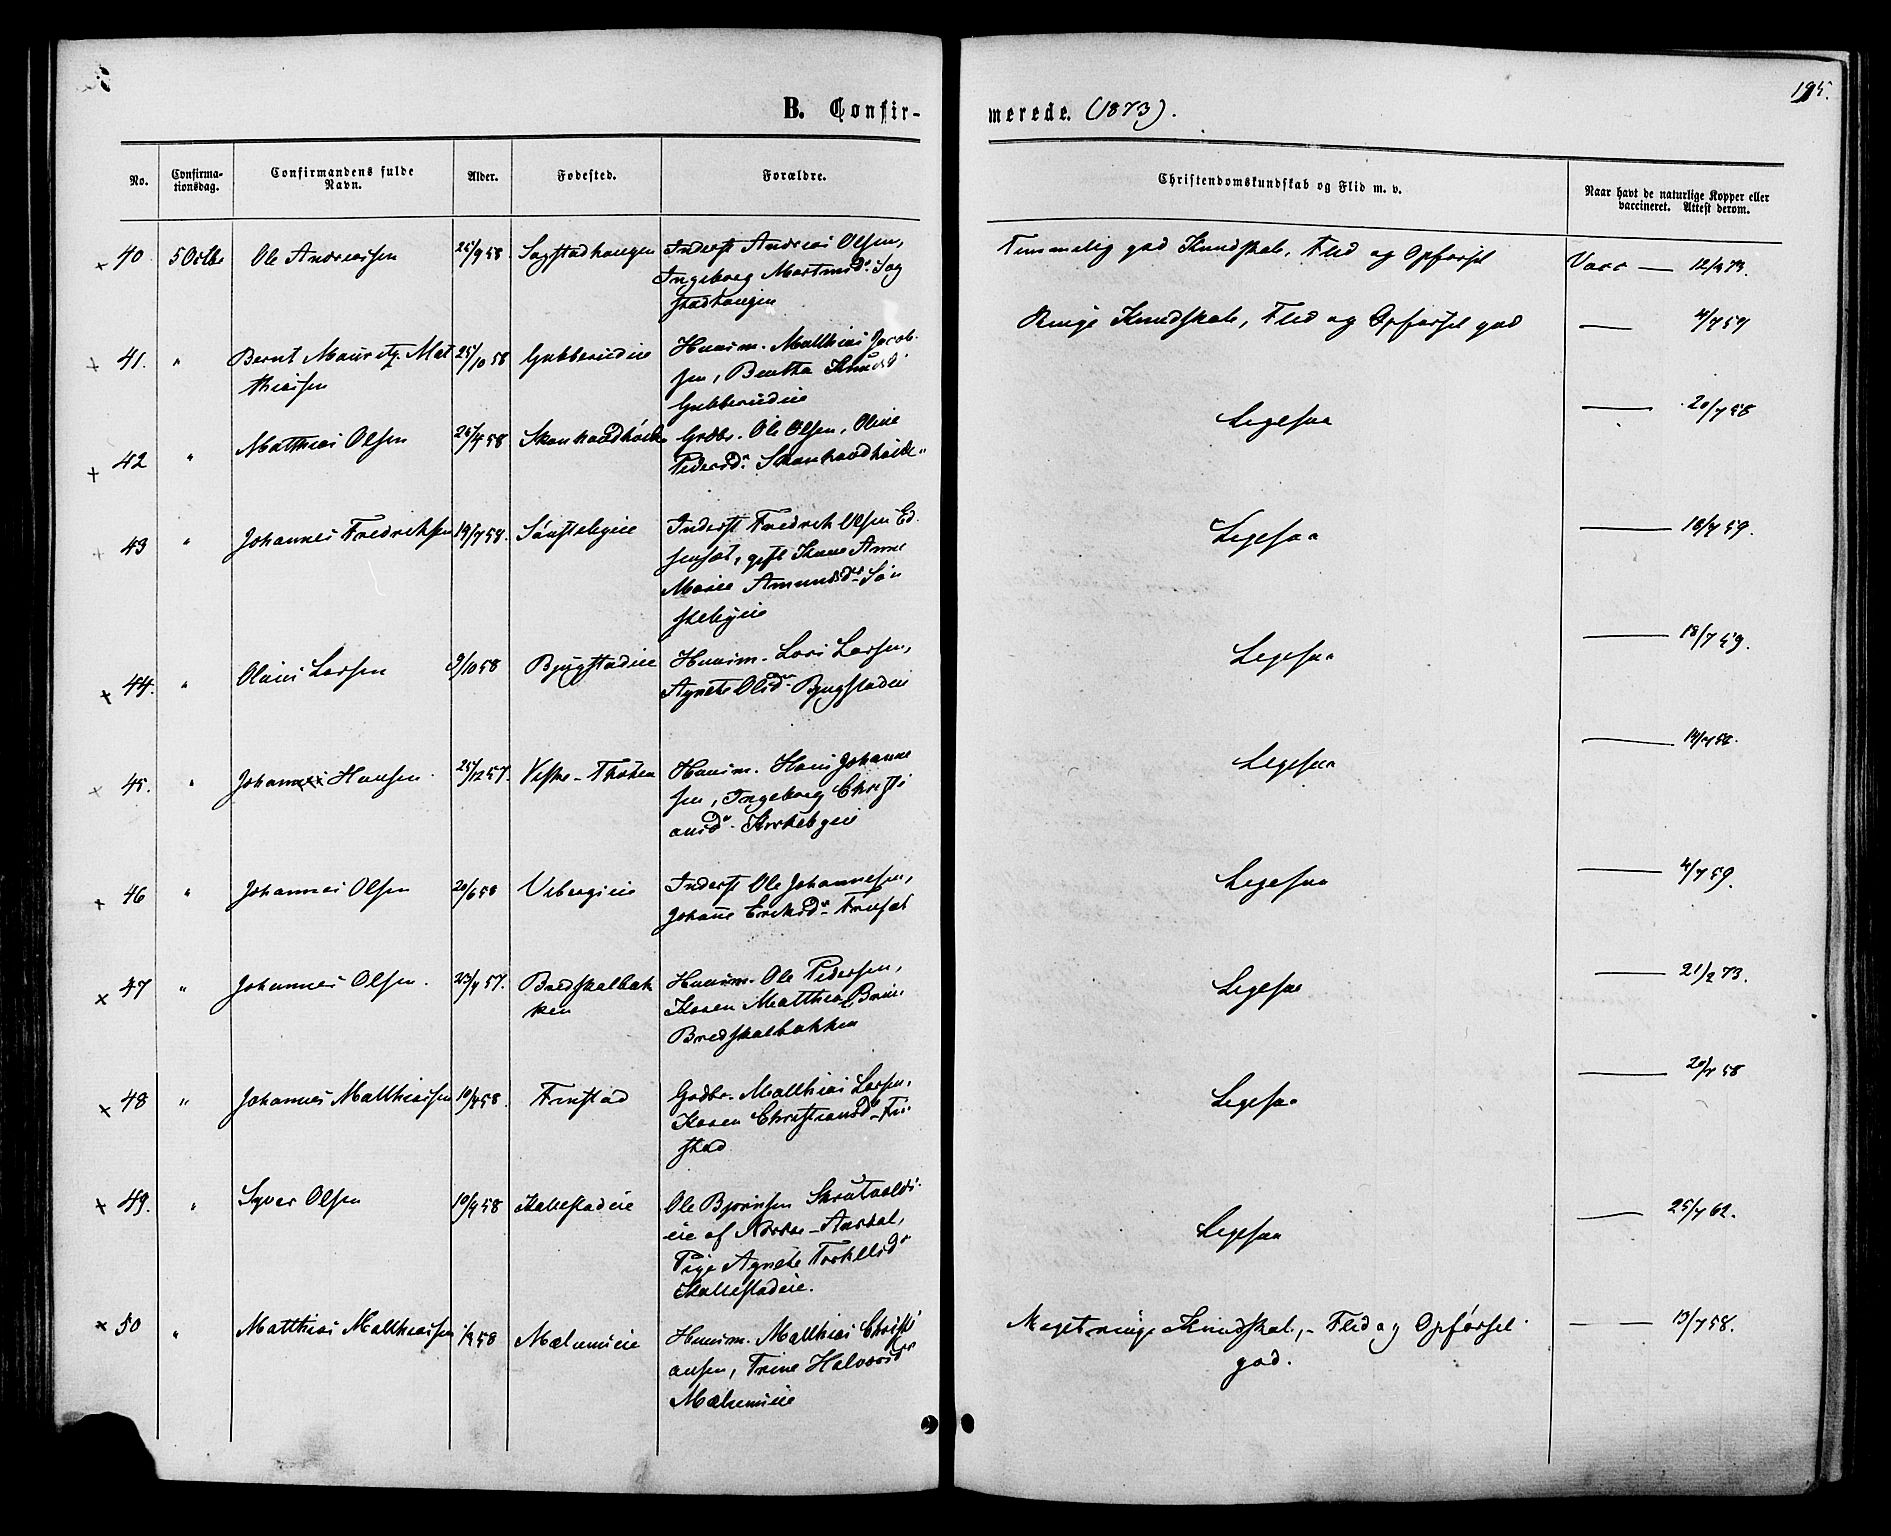 195.
B. Confirmerede. (1873).
No.
Confirma-
tionsdag.
Confirmandens fulde
Navn.
Alder.
Fødested.
Forældre.
Christendomskundskab og Flid m. v.
Naar havt de naturlige Kopper eller
vaccineret. Attest derom.
40. 5 Octbr Ole Andreassen 25/9 58 Sogstadhaugen Inderst Andreas Olsen,
Ingeborg Martinsdr Sog
stadhaugen
Temmelig god Kundskab, Flid og Opførsel Vacc — 12/3 73.
41. " Bernt Mauritz Mat
thiassen
25/10 58 Gubberudeie Huusm. Matthias Jacob-
sen, Berthe Knudsd
Gubberudeie
Ringe Kundskab, Flid og Opførsel god —
42 " Matthias Olsen 26/4 58 Grdbr. Ole Olsen, Oline
Pedersdr
Ligesaa — 20/7 58
43 " Johannes Fredriksen 19/7 58. Sønstebyeie Inderst Fredrik Olsen Ed
gift Kone Anne
Marie Amundsdr Søn
stebyeie
Ligesaa — 18/7 59.
44. " Olaus Larsen 9/10 58 Bjugstadeie Huusm. Lars Larsen,
Agnete Olsdr Bjugstadeie
Ligesaa — 18/7 59.
45. " Johannes Hansen 25/12 57. Thoten Huusm. Hans Johanne
sen, Ingeborg Christi
ansdr Kirkebyeie
Ligesaa —
46 " Johannes Olsen 20/6 58 Vibergseie Inderst Ole Johannesen,
Johanne Eriksdr
Ligesaa — 4/7 59.
47 " Johannes Olsen. 23/4 57. Bredskalbak
ken
Huusm. Ole Pedersen,
Karen
Bredskalbakken
Ligesaa — 21/2 73.
48 " Johannes Matthiassen 10/4 58. Finstad Gadbr. Matthias Larsen,
Karen Christiansdr Fin
stad
Ligesaa — 20/7 58
49. " Syver Olsen 10/9 58 Kallestadeie Ole Bjørnsen
eie af Nordre-Aurdal,
Pige Agnete Torkilsdr
Kallestadeie.
Ligesaa — 25/7 62.
50 " Matthias Matthiassen 1/9 58 Mælumseie Huusm. Matthias Christi
ansen, Trine Halvorsdr
Mælumseie
Meget ringe Kundskab, - Flid og Opførsel
god.
— — 13/7 58.